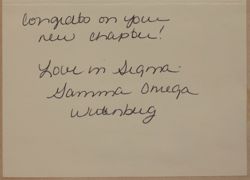 Congrats on your
new chapter!
Love in Sigma
Gamma Omega
Wittenberg